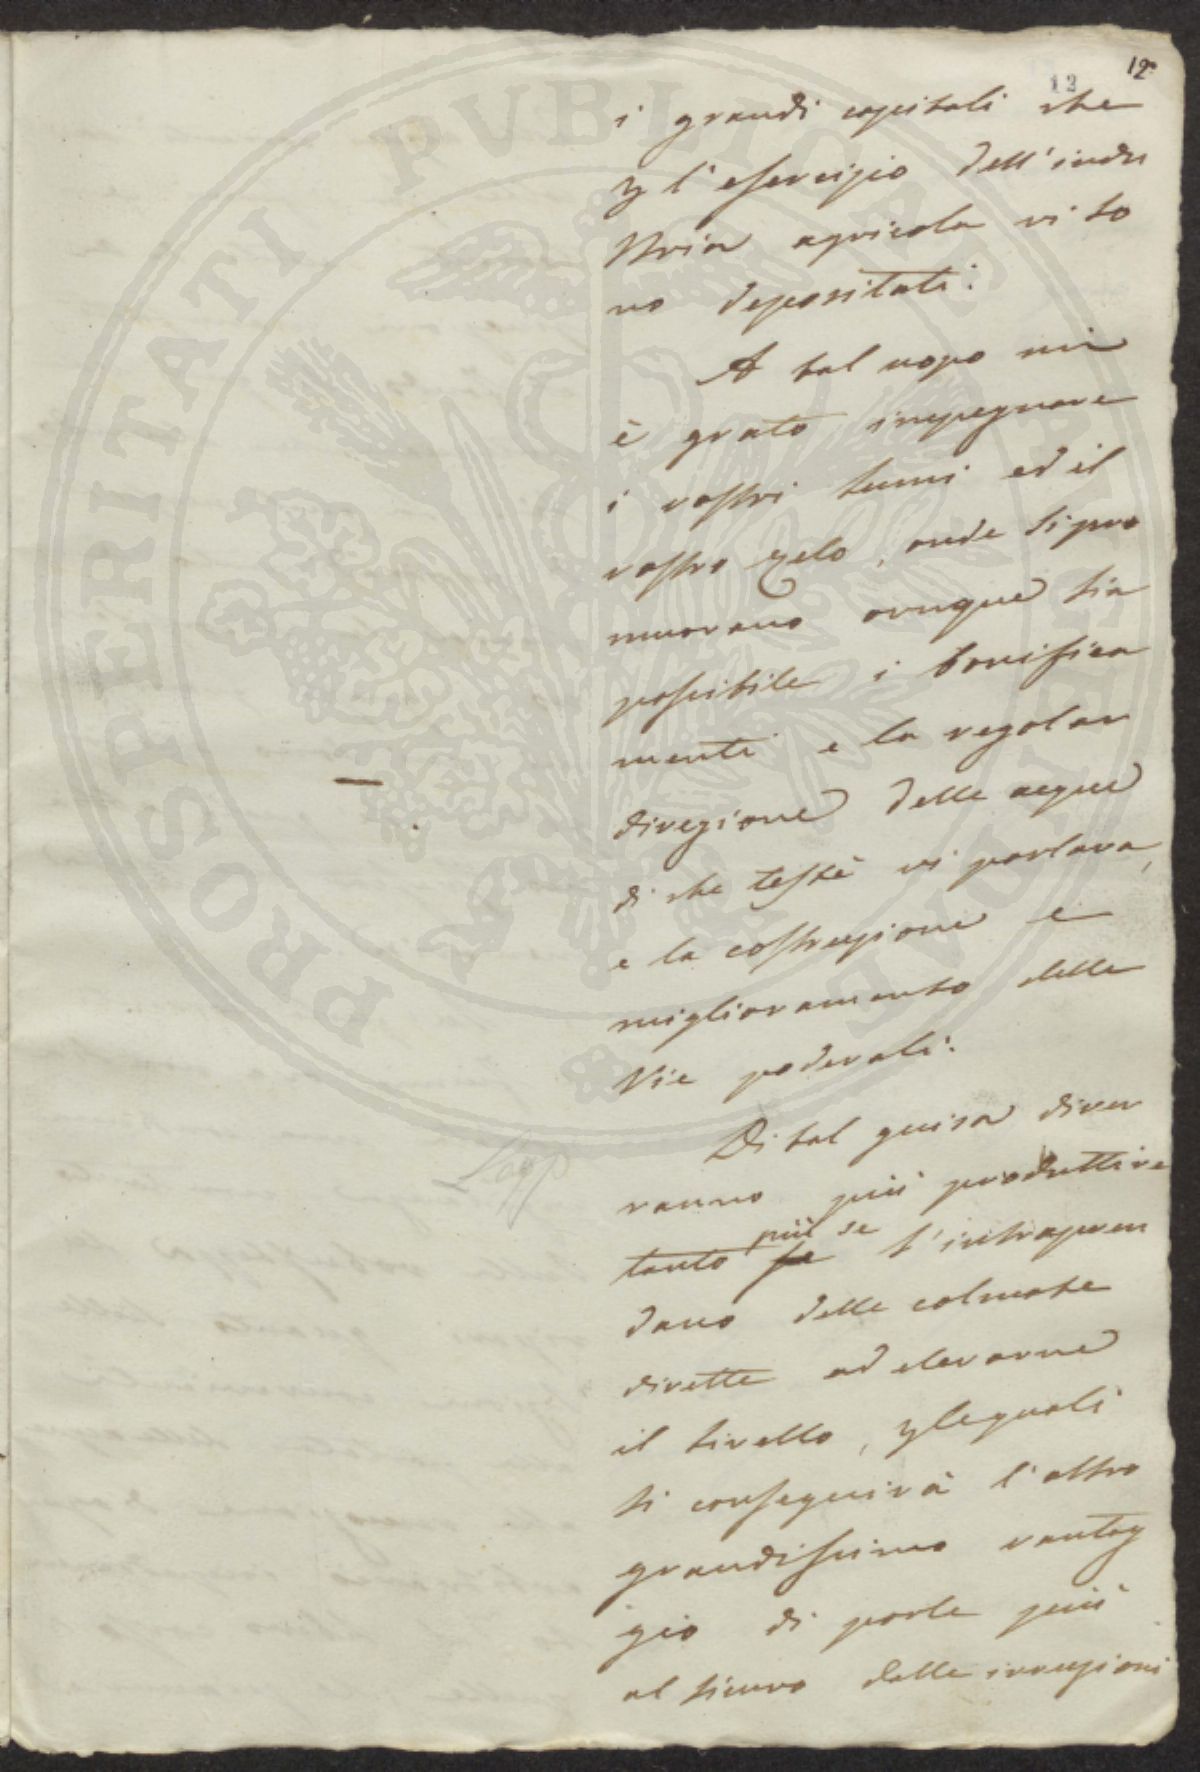 12
12
i grandi capitali che
p l'esercizio dell'indu
stria agricola vi so
no depositati.
A tal uopo mi
è grato impegnare
i vostri lumi ed il
vostro zelo, onde si pro
muovano ovunque sia
possibile i bonifica
menti e la regolar
direzione delle acque
di che testè vi parlava,
e la costruzione e
miglioramento delle
Vie poderali.
Di tal guisa diver
ranno più produttive
tanto più se s'intrapren
dano delle colmate
dirette ad elevarne
il livello, p le quali
si conseguirà l'altro
grandissimo vantag
gio di porle più
al sicuro dalle irruzioni
PROSPERITATI PVBLICAE AVGENDAE